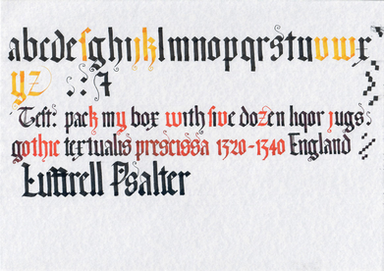 abcdefghijklmnopqrstuvwx
yz : : 7
Test: pack my box with five dozen liqor jugs:
gothic textualis prescissa 1320-1340 England
Luttrell Psalter